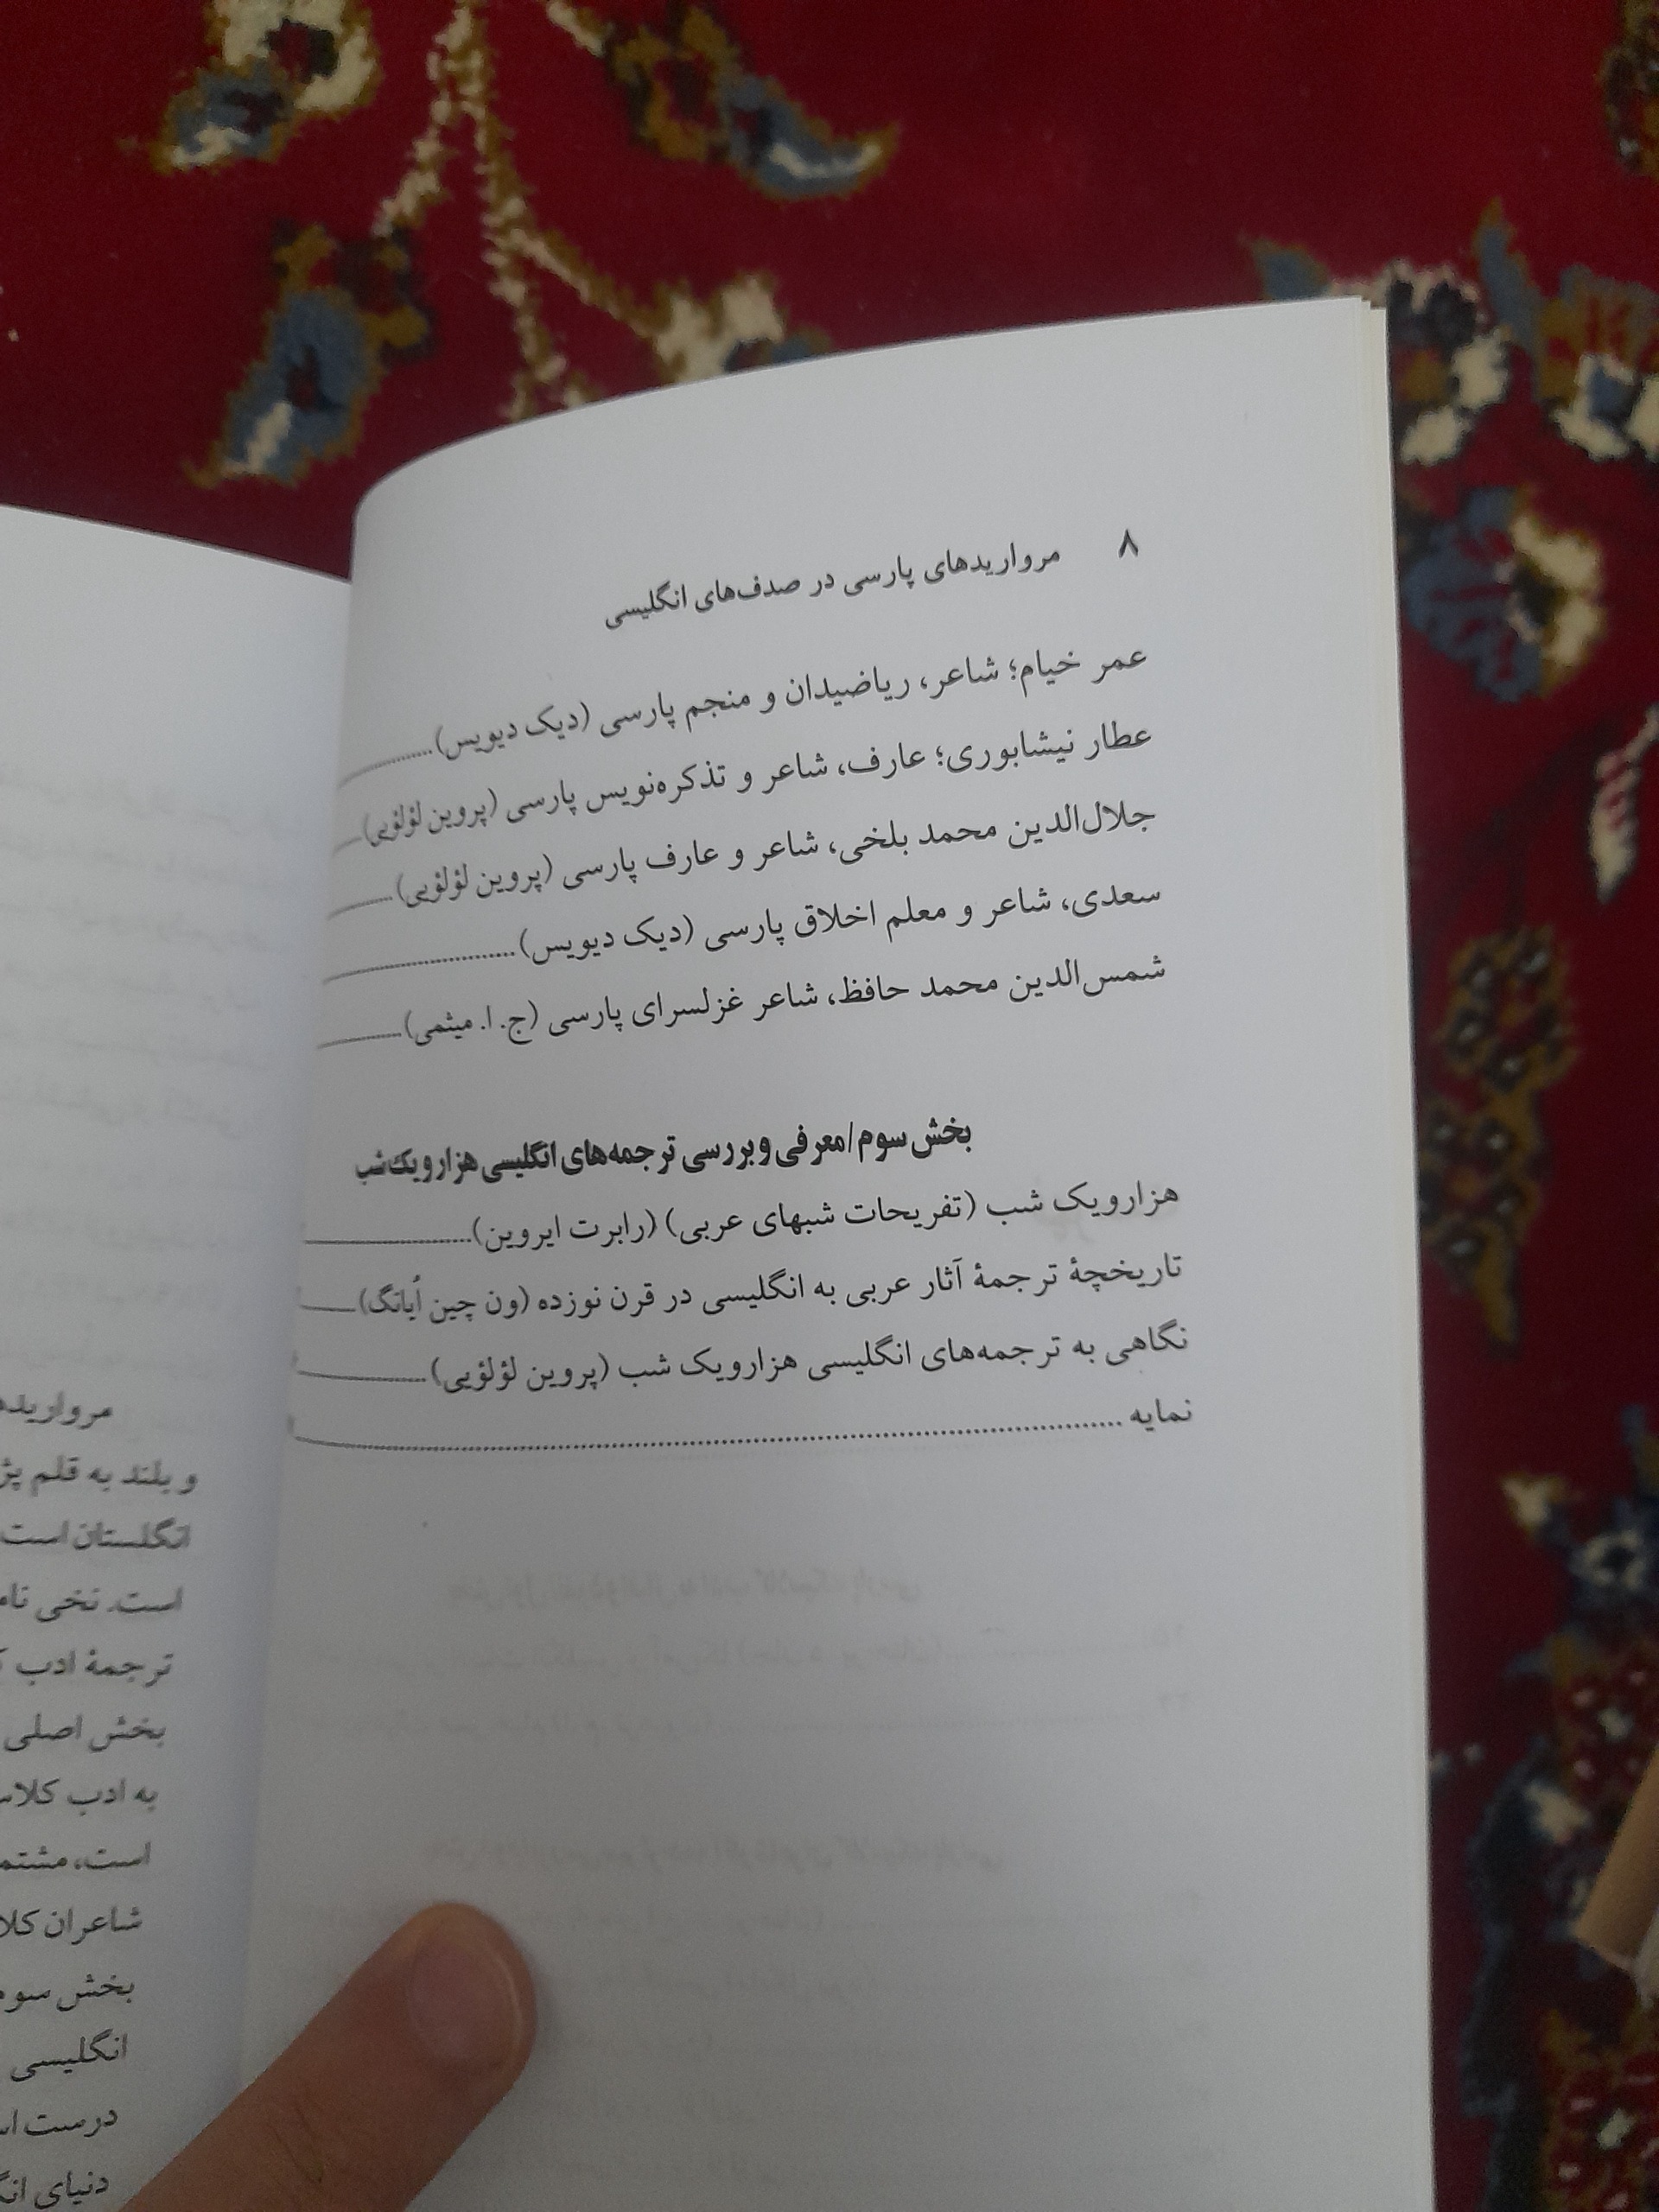 ۸ مرواریدهای پارسی در صدف‌های انگلیسی
عمر خیام؛ شاعر، ریاضیدان و منجم پارسی (دیک دیویس)
عطار نیشابوری؛ عارف، شاعر و تذکره‌نویس پارسی (پروین لؤلؤیی)
جلال‌الدین محمد بلخی، شاعر و عارف پارسی (پروین لؤلؤیی)
سعدی، شاعر و معلم اخلاق پارسی (دیک دیویس)
شمس‌الدین محمد حافظ، شاعر غزلسرای پارسی (ج. ا. میثمی)
بخش سوم/معرفی و بررسی ترجمه‌های انگلیسی هزار و یک شب
هزارویک شب (تفریحات شبهای عربی) (رابرت ایروین)
تاریخچهٔ ترجمهٔ آثار عربی به انگلیسی در قرن نوزده (ون چین اُیانگ)
نگاهی به ترجمه‌های انگلیسی هزارویک شب (پروین لؤلؤیی)
نمایه
و بلند به قلم
انگلستان است
است. نخی
ترجمهٔ ادب
بخش اصلی
به ادب
است، مشتمل
شاعران
بخش سوم
انگلیسی
درست
دنیای